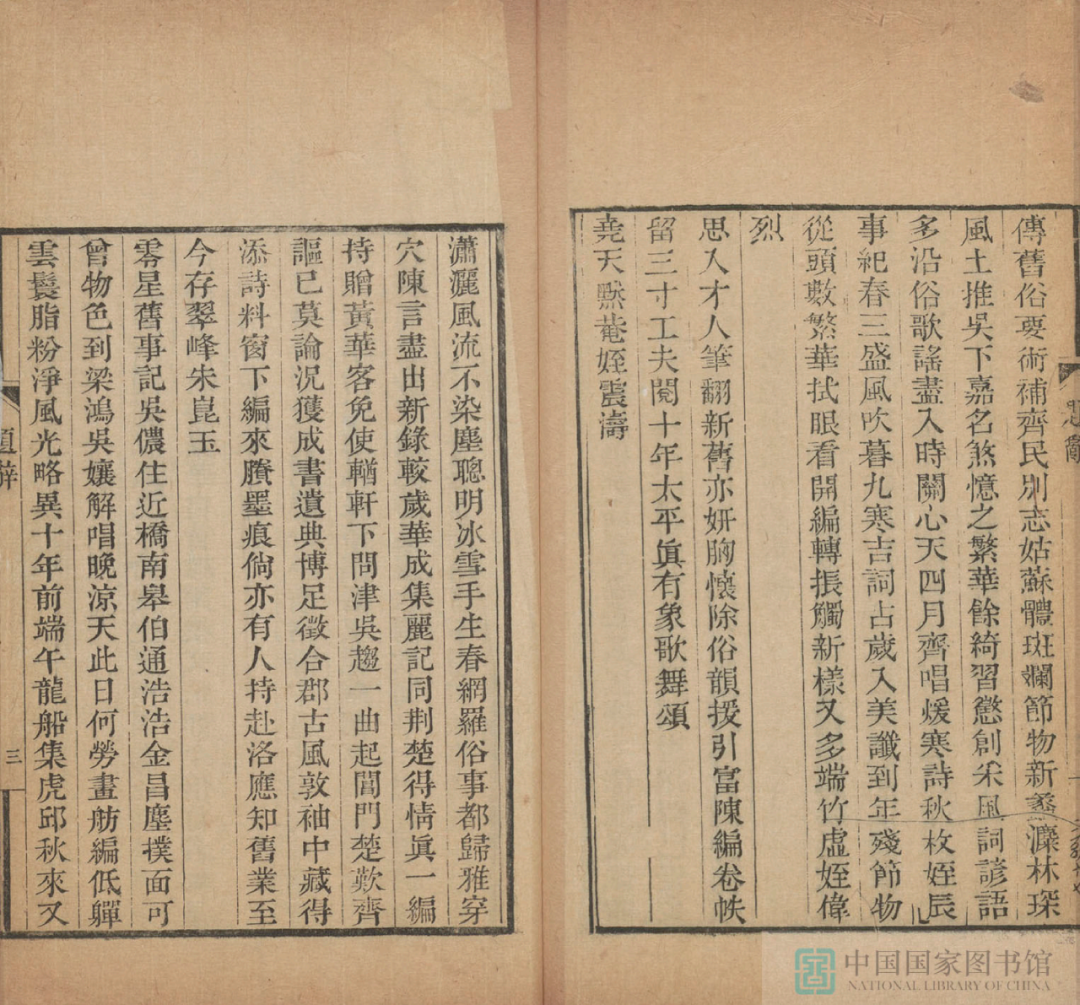 傳舊俗要術補齊民別志姑蘇體斑斕節物新蠡濂林琛
風土推吳下嘉名煞憶之繁華餘綺習懲創采風詞諺語
多沿俗歌謠盡入時關心天四月齊唱煖寒詩秋枚姪辰
事紀春三盛風吹暮九寒吉詞占歲入美讖到年殘節物
從頭數繁華拭眼看開編轉振觸新樣又多端竹虛姪偉
烈
思入才人筆翻新舊亦妍胸懷除俗韻援引富陳編卷帙
留三寸工夫閱十年太平眞有象歌舞頌
堯天㸃菴姪震濤
題辭
瀟灑風流不染塵聰明冰雪手生春網羅俗事都歸雅穿
穴陳言盡出新錄較歲華成集麗記同荆楚得情眞一編
持贈黃華客免使輶軒下問津吳趨一曲起閶門楚歎齊
謳已莫論況獲成書遺典博足徵合郡古風敦袖中藏得
添詩料窗下編來賸墨痕倘亦有人持赴洛應知舊業至
今存翠峰朱崑玉
零星舊事記吳儂住近橋南皋伯通浩浩金昌塵撲面可
曾物色到梁鴻吳孃解唱晚涼天此日何勞畫舫編低嚲
雲鬟脂粉淨風光略異十年前端午龍船集虎邱秋來又
題辭
三
中国国家图书馆
NATIONAL LIBRARY OF CHINA